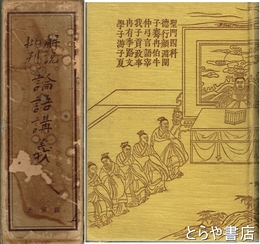 解説
批判
論語講義
聖門四科
德行顏淵閔
子騫冉伯牛
仲弓言語宰
我子貢政事
冉有季路文
學子游子夏
とらや書店